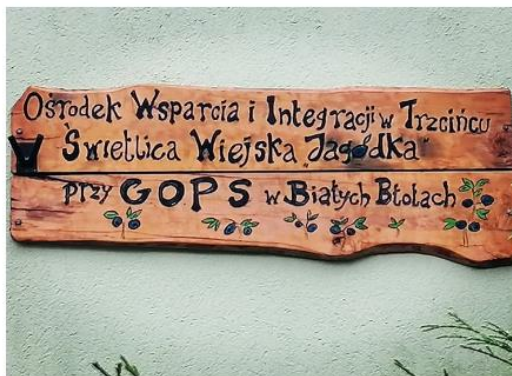 Ośrodek Wsparcia i Integracji w Trzcińcu
Świetlica Wiejska "Jagódka"
przy GOPS w Białych Błotach